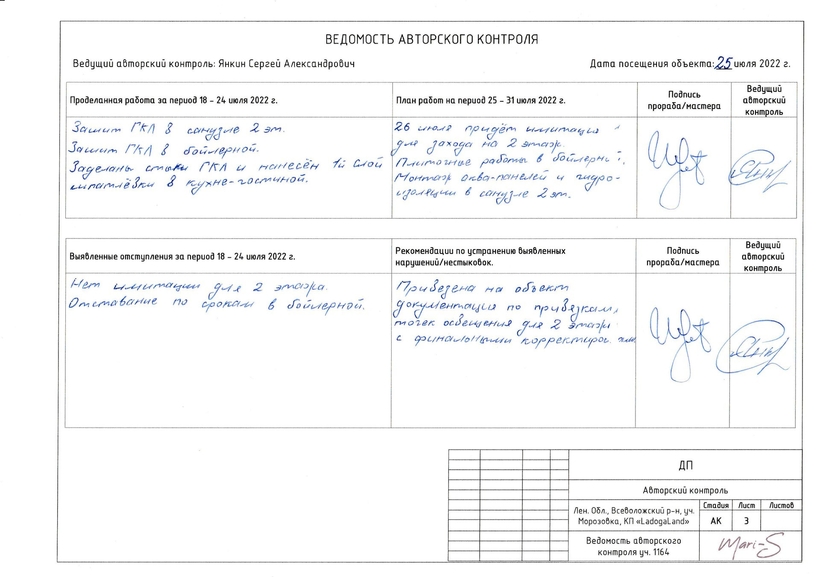 ВЕДОМОСТЬ АВТОРСКОГО КОНТРОЛЯ
Ведущий авторский контроль: Янкин Сергей Александрович
Дата посещения объекта: 25 июля 2022 г.
Проделанная работа за период 18 – 24 июля 2022 г.
План работ на период 25 – 31 июля 2022 г.
Подпись
прораба/мастера
Ведущий
авторский
контроль
Зашит ГКЛ в санузле 2 эт.
Зашит ГКЛ в бойлерной.
Заделаны стыки ГКЛ и нанесён 1й слой
шпатлёвки в кухне-гостиной.
26 июля придёт имитация
для захода на 2 этаж.
Плиточные работы в бойлерной.
Монтаж аква-панелей и гидро-
изоляции в санузле 2 эт.
Выявленные отступления за период 18 – 24 июля 2022 г.
Рекомендации по устранению выявленных
нарушений/нестыковок.
Подпись
прораба/мастера
Ведущий
авторский
контроль
Нет имитации для 2 этажа.
Отставание по срокам в бойлерной.
Привезена на объект
документация по привязкам
точек освещения для 2 этажа
с финальными
ДП
Авторский контроль
Лен. Обл., Всеволожский р-н, уч.
Морозовка, КП «LadogaLand»
Стадия Лист Листов
АК 3
Ведомость авторского
контроля уч. 1164
Mari-S